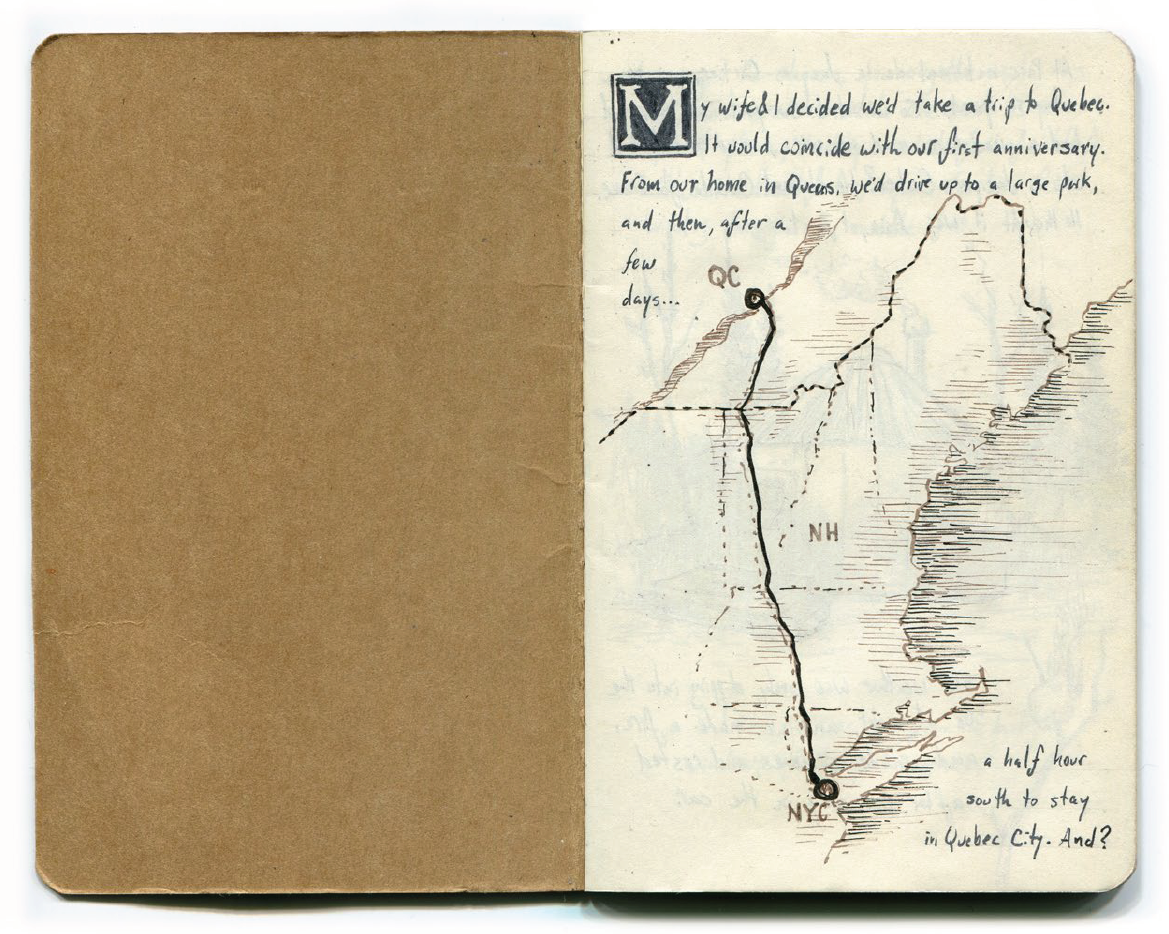 My wife & I decided we'd take a trip to Quebec.
It would coincide with our first anniversary.
From our home in Queens, we'd drive up to a large park,
and then, after a
few
days...
QC
NH
NYC
a half hour
south to stay
in Quebec City. And?